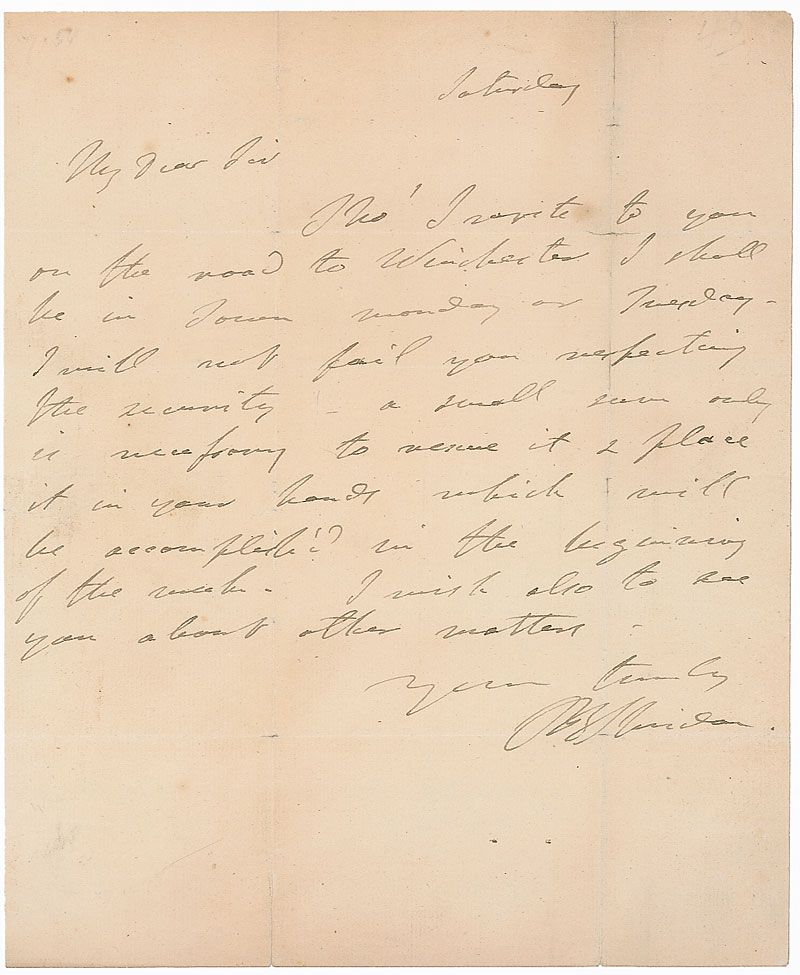 Saturday
My Dear Sir
Tho' I write to you
on the road to Winchester I shall
be in Town monday or Tuesday -
I will not fail you respecting
the security - a small sum only
is necessary to rescue it & place
it in your hands which will
be accomplish'd in the beginning
of the week - I wish also to see
you about other matters -
yours truly
RBSheridan.